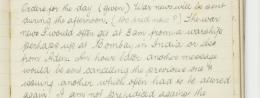 Orders for the day (given) War news will be sent
during the afternoon. (We had now?) The war
news I would often get at 8am from a warship
perhaps up at Bombay in India or else
from Aden. An hour later another message
would be sent cancelling the previous one &
issuing another which often had to be altered
again! I am not prejudiced against the